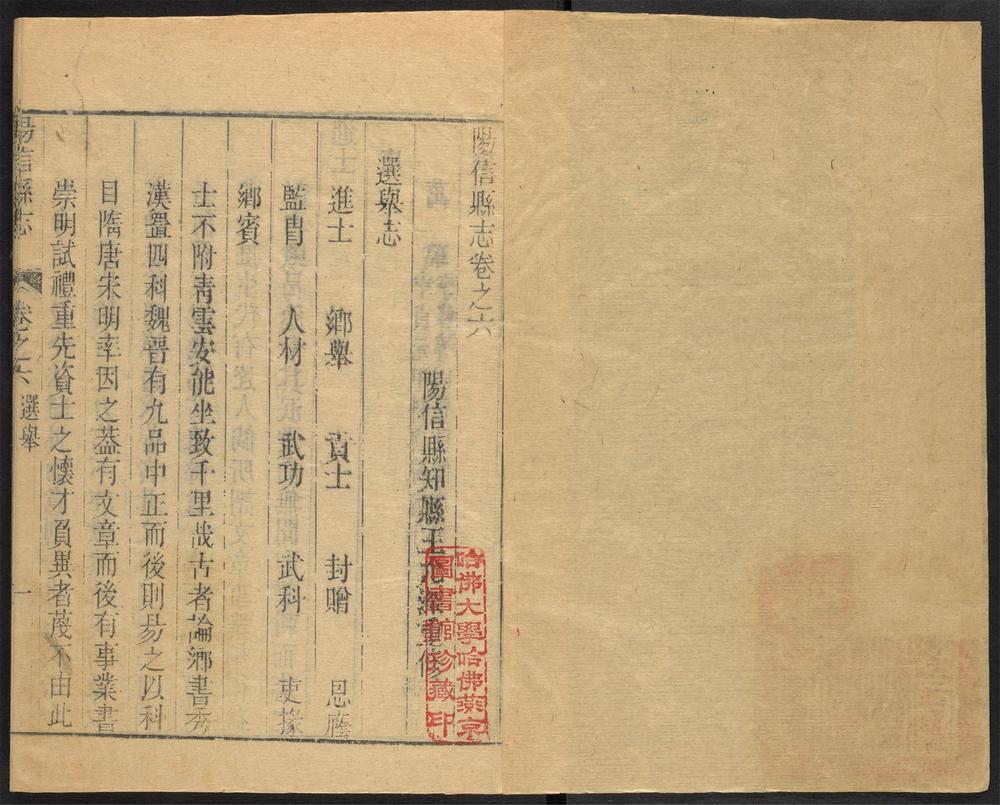 陽信縣志卷之六
陽信縣知縣王允深重修
選舉志
進士 鄉舉 貢士 封贈 恩廕
監胄 人材 武功 武科 吏掾
鄉賓
士不附青雲安能坐致千里哉古者論鄉書秀
漢置四科魏晉有九品中正而後則易之以科
目隋唐宋明率因之葢有文章而後有事業書
崇明試禮重先資士之懷才負異者蔑不由此
陽信縣志 卷之六 選舉 一
哈佛大學哈佛燕京
圖書館珍藏印